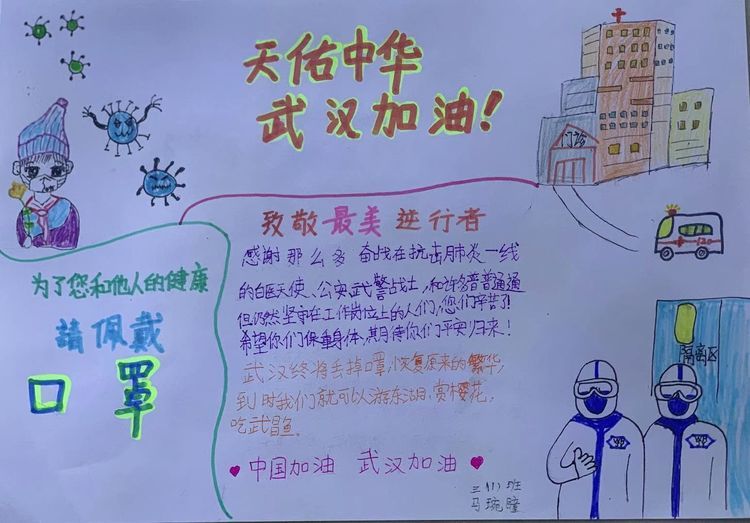 天佑中华
武汉加油!
门诊
致敬最美逆行者
感谢那么多奋战在抗击肺炎一线
的白医天使、公安武警战士,和许多普普通通
但仍然坚守在工作岗位上的人们,您们辛苦了!
希望你们保重身体,期待你们平安归来!
武汉终将丢掉口罩,恢复原来的繁华,
到时我们就可以游东湖,赏樱花,
吃武昌鱼。
中国加油 武汉加油
三(1)班
马琬瞳
为了您和他人的健康
請佩戴
口罩
120
隔离区